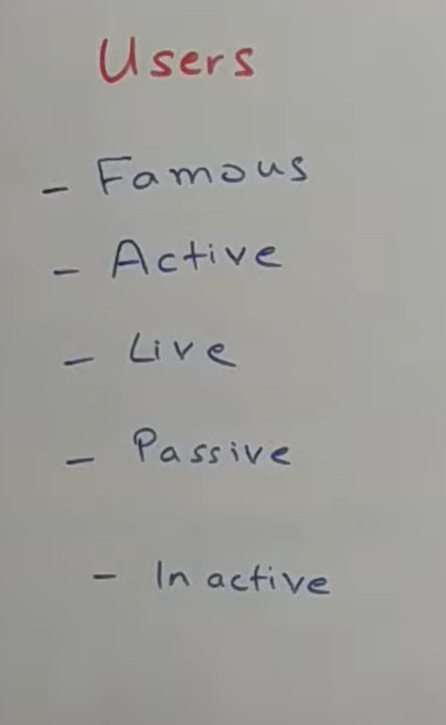 Users
- Famous
- Active
- Live
- Passive
- In active